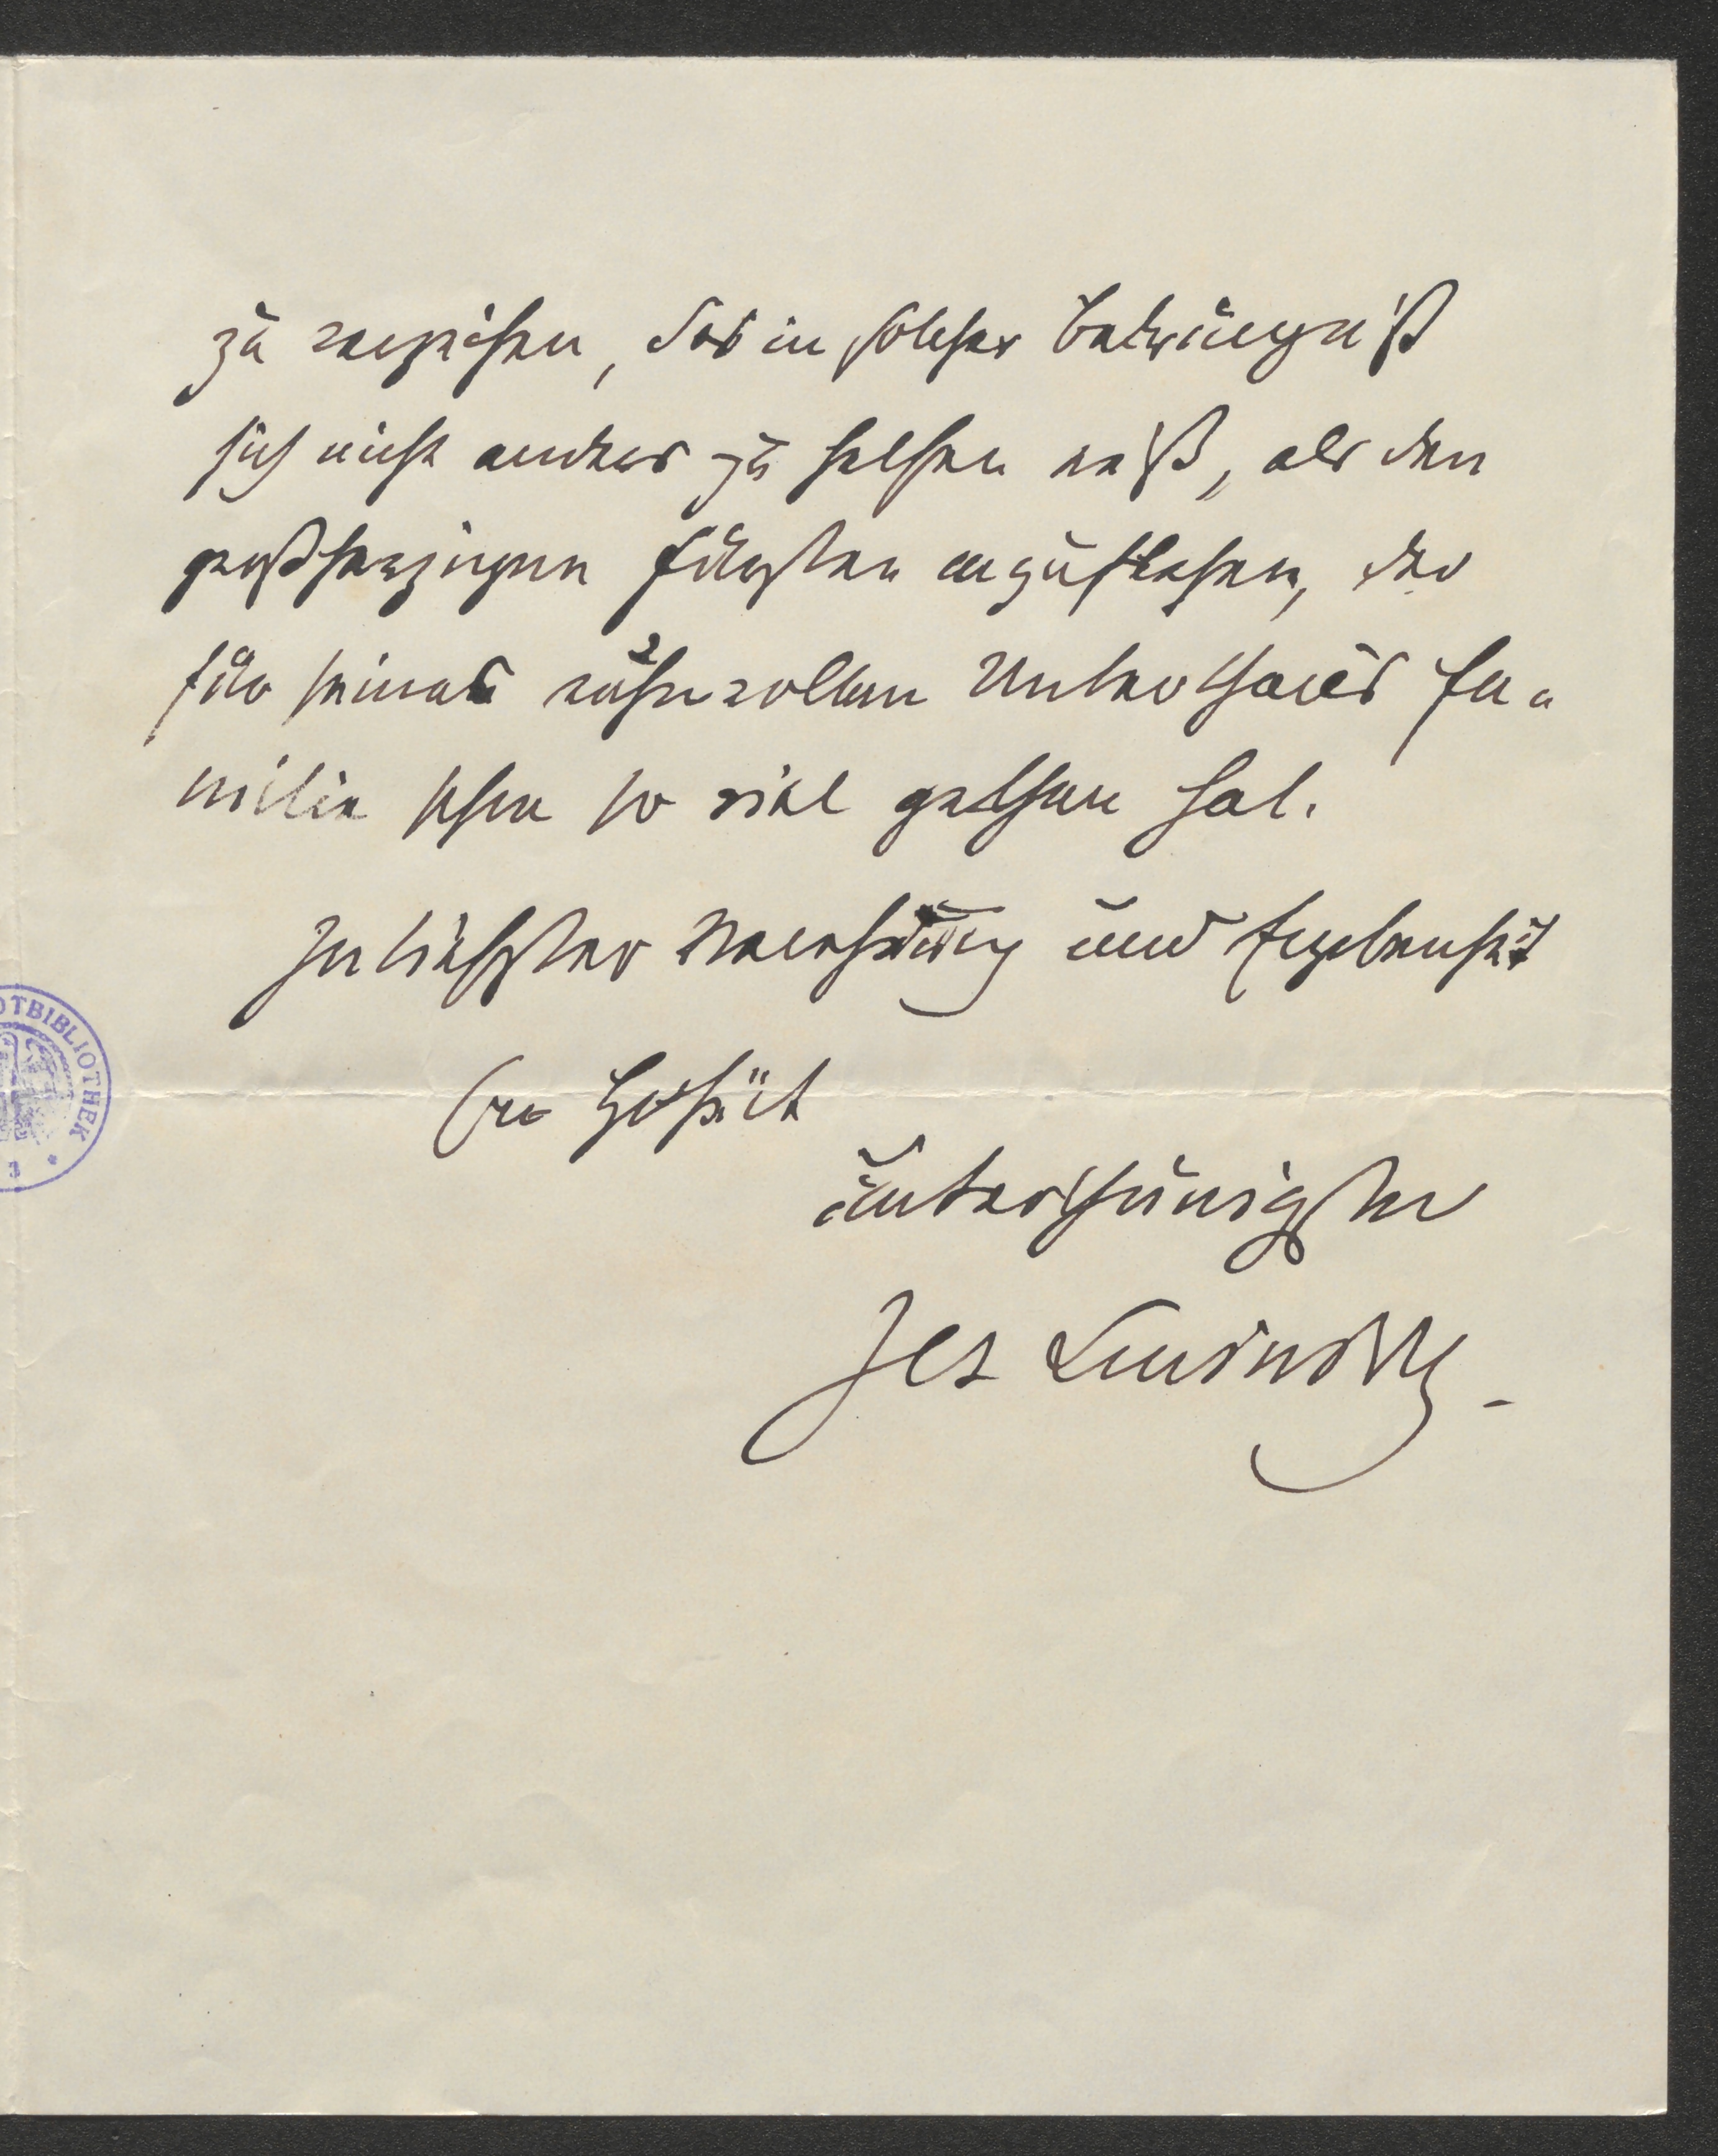 zu verzeihen, das in solcher Bedrängniß
sich nicht anders zu helfen weiß, als den
großherzigen Fürsten anzuflehen, der
für seines ruhmvollen Unterthans Fa-
milie schon so viel gethan hat.
In tiefster Verehrung und Ergebenheit
Eu Hoheit
unterthänigster
Jos Lewinsky
OTBIBLIOTHEK